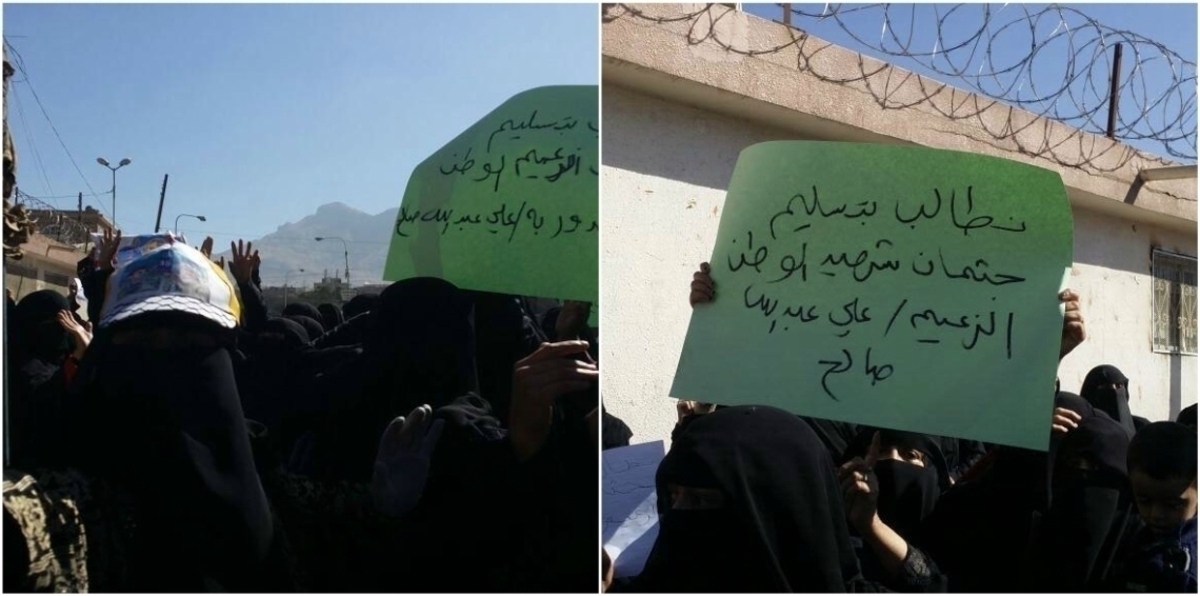 بتسليم
الوطن
علي عبدالله صالح
نطالب بتسليم
جثمان شهيد الوطن
الزعيم / علي عبدالله
صالح